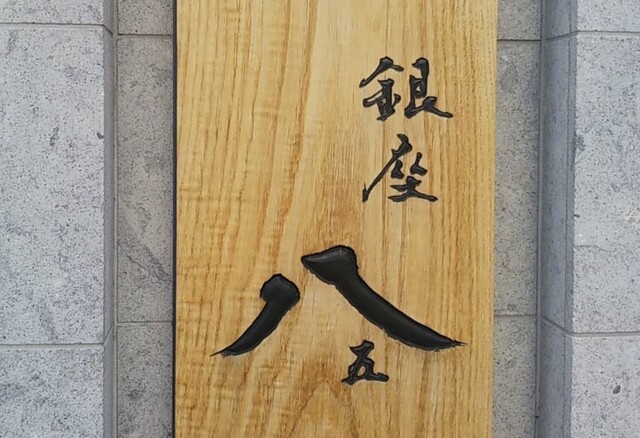 銀座
八
五